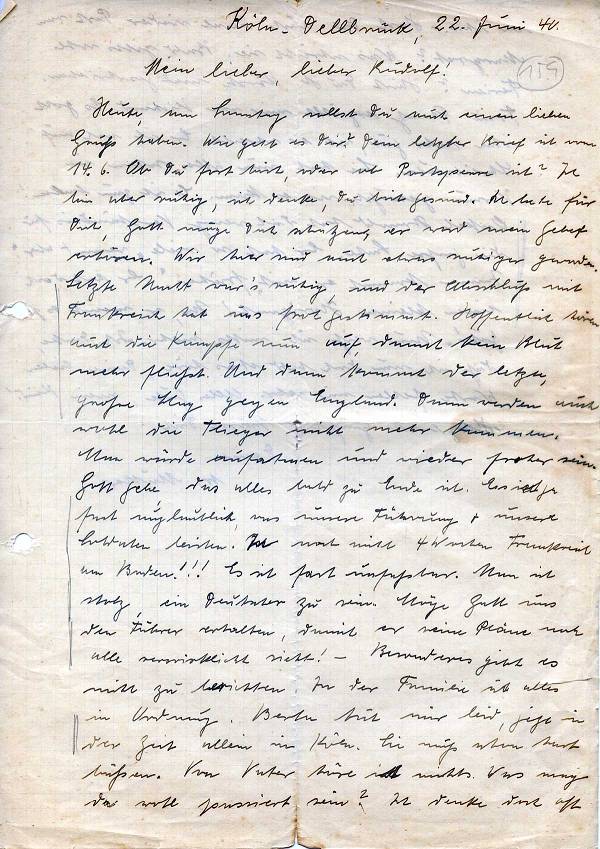 Köln-Dellbrück, 22. Juni 40.
159
Mein lieber, lieber Rudolf!
Heute, am Samstag sollst Du noch einen lieben
Gruß haben. Wie geht es Dir? Dein letzter Brief ist vom
14.6. Ob Du fort bist, oder ob Postsperre ist? Ich
bin aber ruhig, ich denke, Du bist gesund. Ich bete für
Dich, Gott möge Dich schützen, er wird mein Gebet
erhören. Wir hier sind auch etwas ruhiger geworden.
Letzte Nacht war's ruhig, und der Abschluß mit
Frankreich hat uns froh gestimmt. Hoffentlich hören
auch die Kämpfe nun auf, damit kein Blut
mehr fließt. Und dann kommt der letzte,
große Sieg gegen England. Dann werden auch
wohl die Flieger nicht mehr kommen.
Man würde aufatmen und wieder froher sein.
Gott gebe das alles bald zu Ende ist. Es ist ja
fast unglaublich, was unsere Führung & unsere
Soldaten leisten. In noch nicht 4 Wochen Frankreich
am Boden!!! Es ist fast unfassbar. Man ist
stolz, ein Deutscher zu sein. Möge Gott uns
den Führer erhalten, damit er seine Pläne noch
alle verwirklicht sieht! – Besonderes gibt es
nicht zu berichten. In der Familie ist alles
in Ordnung. Berta tut mir leid, jetzt in
der Zeit allein in Köln. Sie muß schon hart
büßen. Von Vater höre ich nichts. Was mag
da wohl passiert sein? Ich denke doch oft